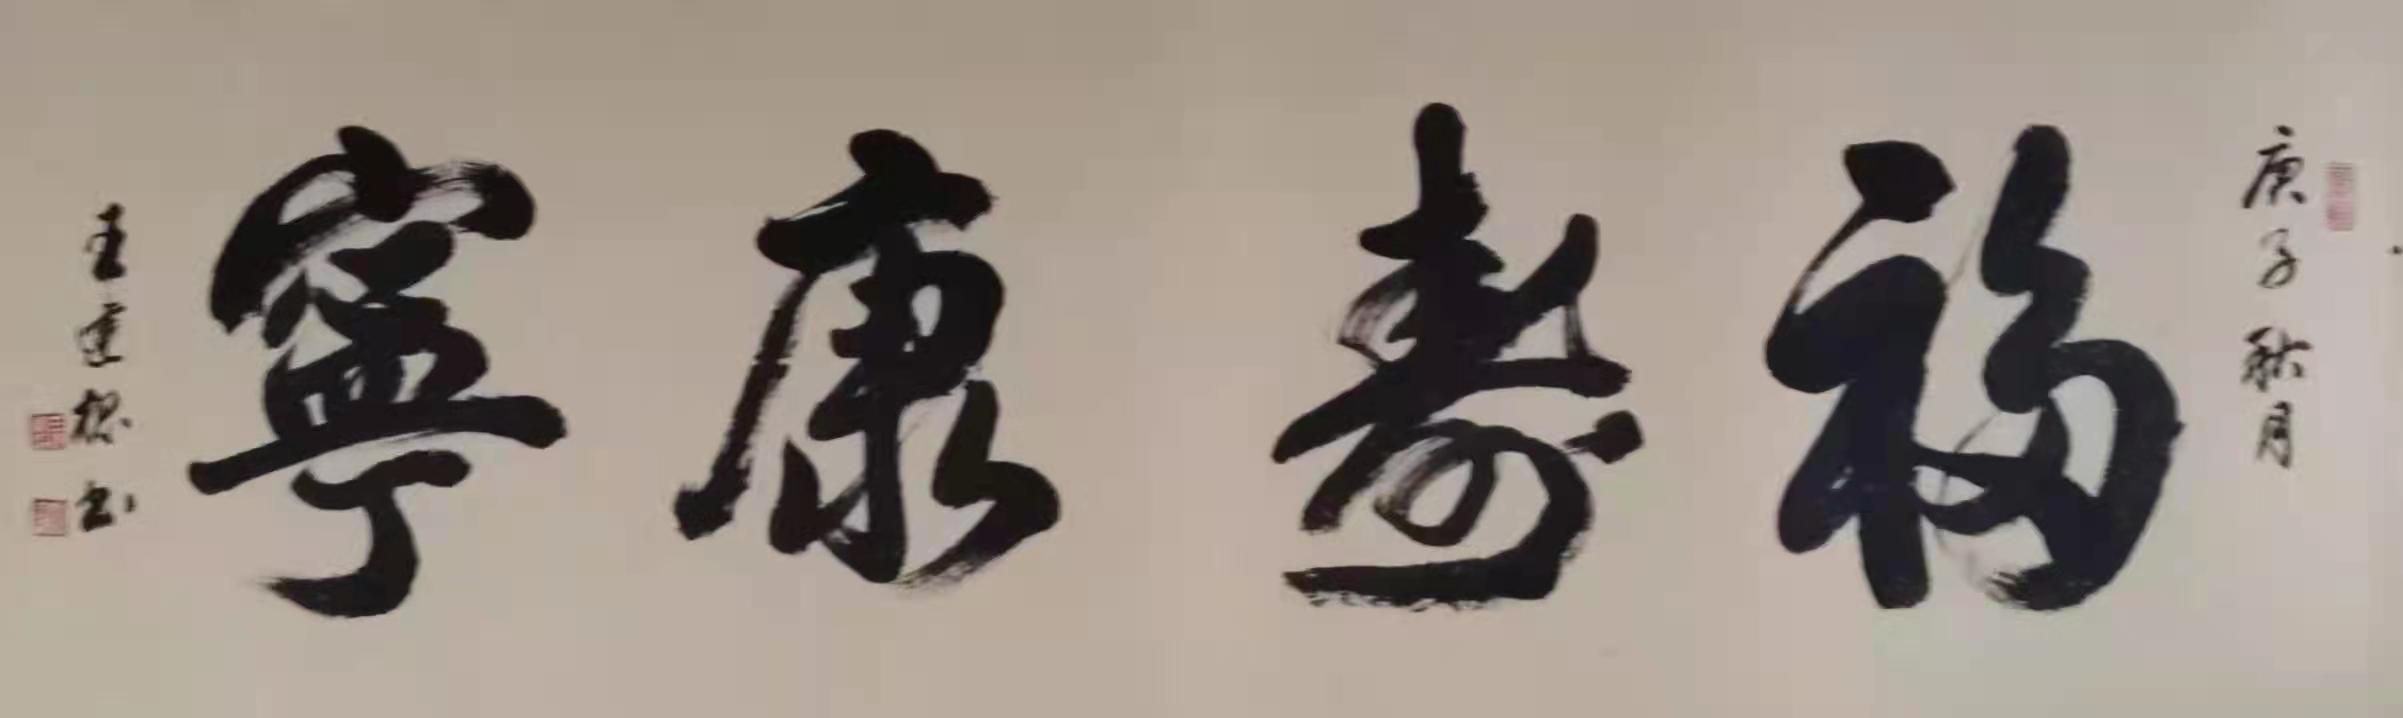 庚子秋月
福壽康寧
王建根书